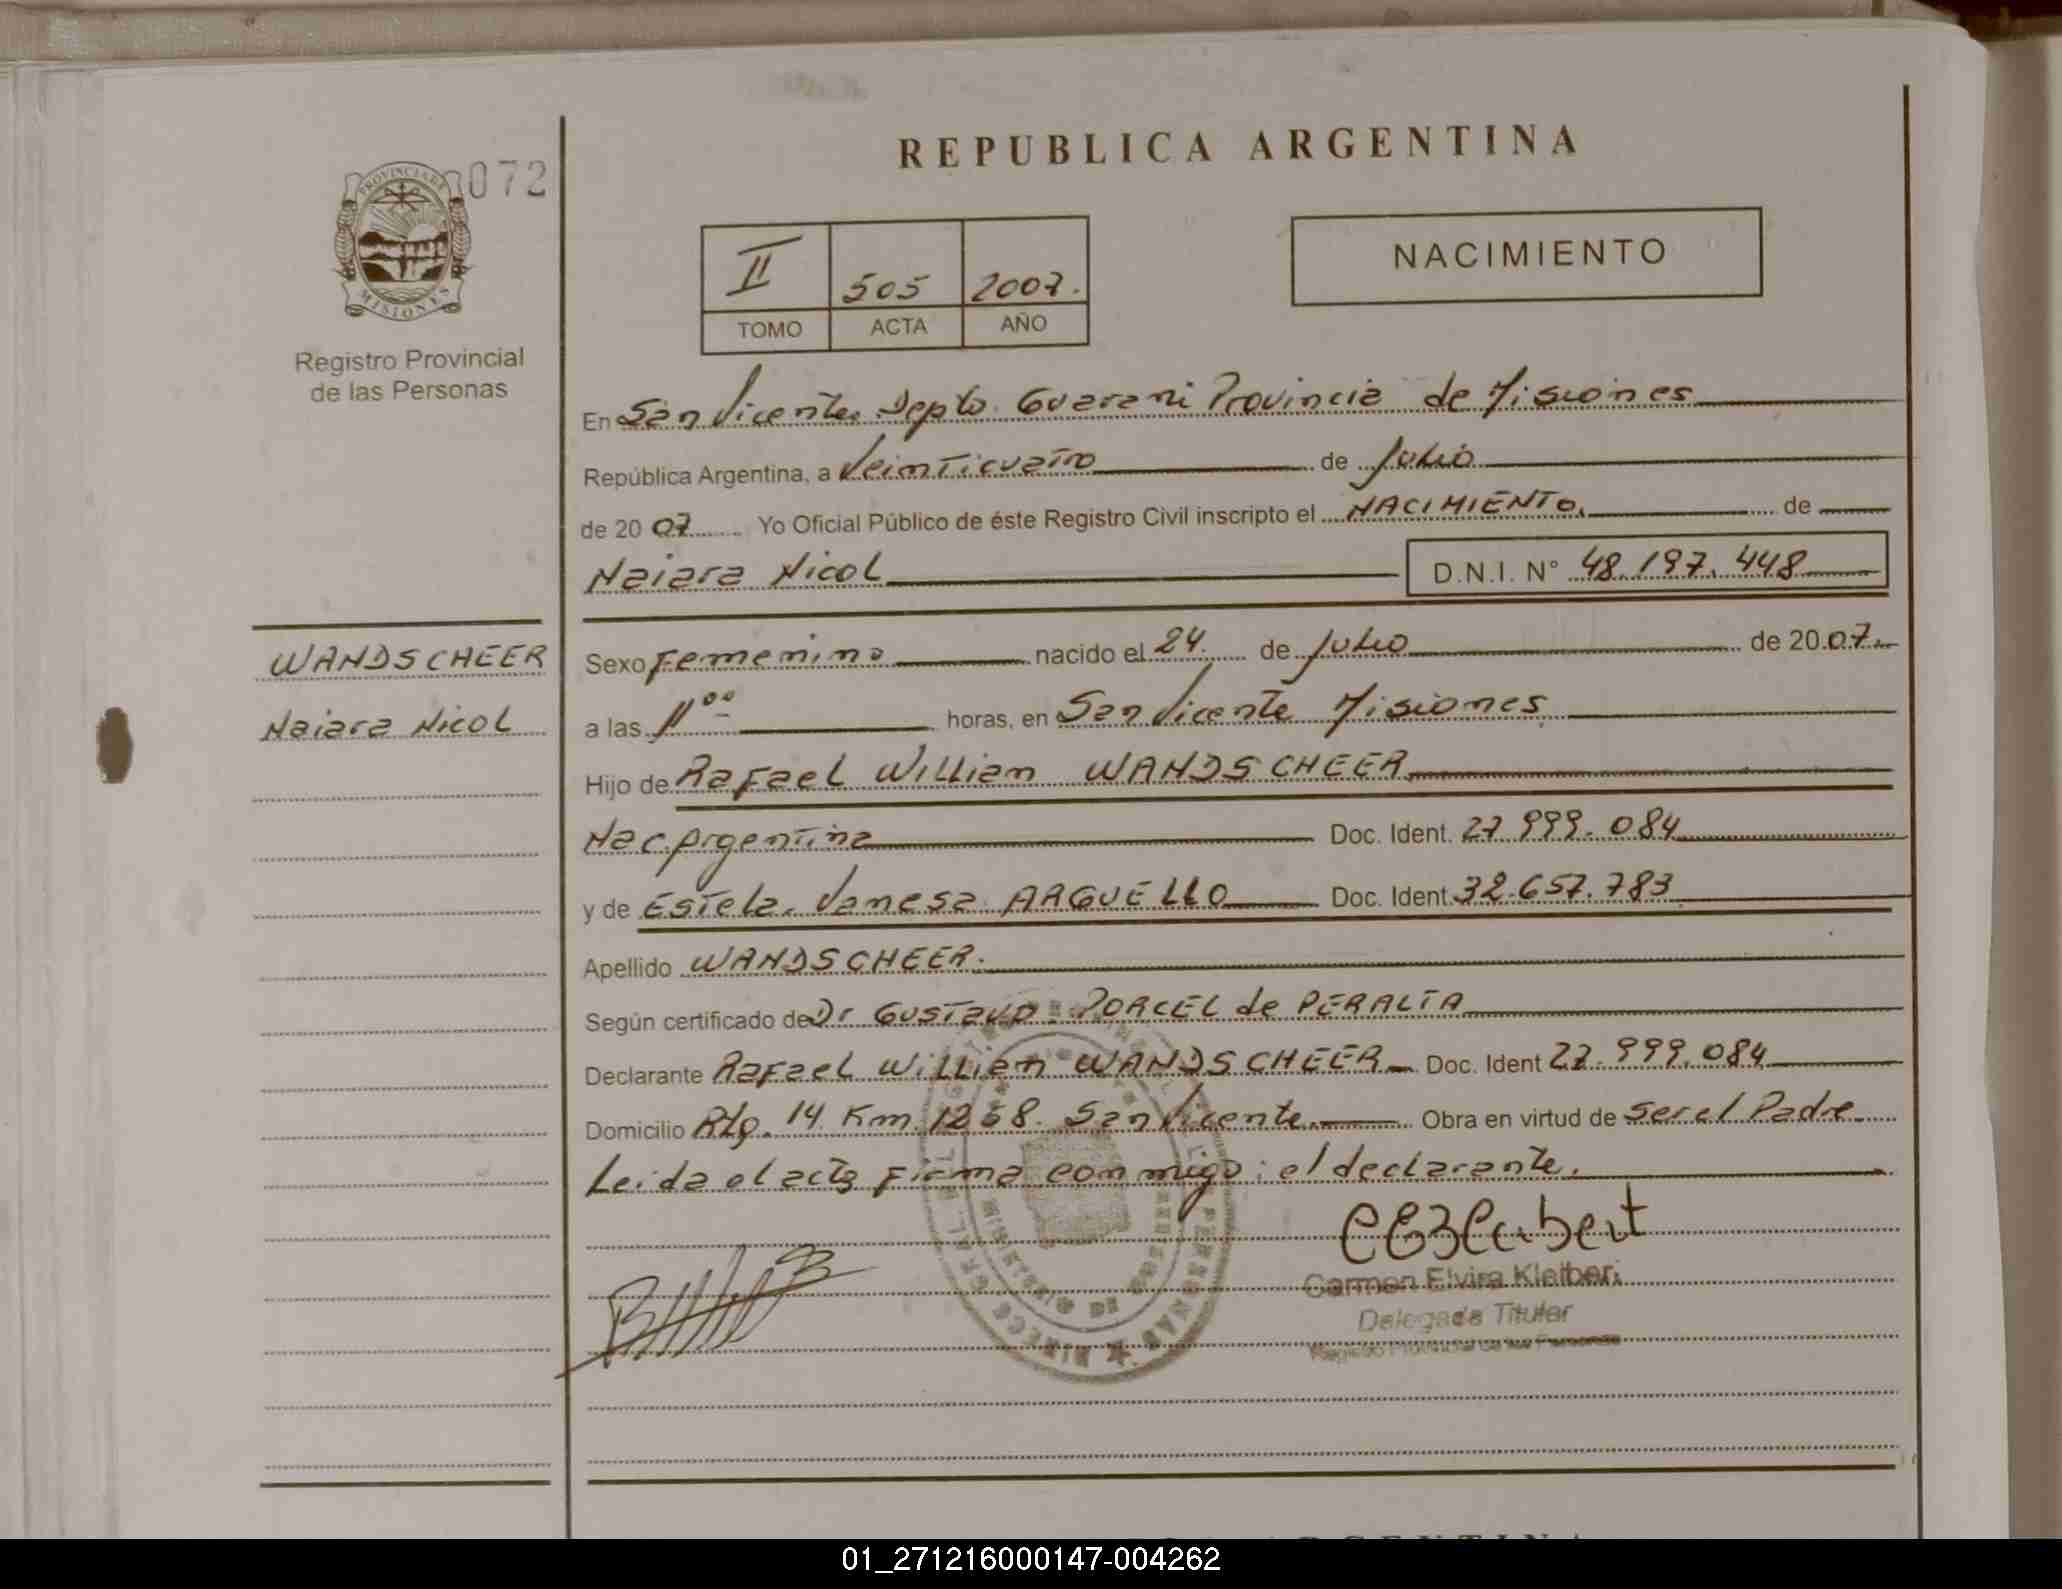 REPUBLICA ARGENTINA
072
PROVINCIA DE
MISIONES
Registro Provincial
de las Personas
II 505 2007.
TOMO ACTA AÑO
NACIMIENTO
En San Vicente Depto. Guarani Provincia de Misiones
República Argentina, a Veinticuatro de Julio
de 20 07 Yo Oficial Público de éste Registro Civil inscripto el NACIMIENTO. de
Naiara Nicol D.N.I. N° 48.197.448
WANDSCHEER
Naiara Nicol
Sexo Femenino nacido el 24. de Julio de 20 07
a las 11 00 horas, en San Vicente Misiones
Hijo de Rafael Willian WANDSCHEER
Nac. Argentina Doc. Ident. 27.999.084
y de Estela. Vanesa ARGUELLO Doc. Ident. 32.657.783
Apellido WANDSCHEER.
Según certificado de Dr Gustavo. PORCEL de PERALTA
Declarante Rafael Willian WANDSCHEER Doc. Ident 27.999.084
Domicilio Rta. 14 Km. 1268. San Vicente. Obra en virtud de ser el Padre
Leida el acta firma con migo: el declarante.
Carmen Elvira Kleibert
Delegada Titular
Registro Provincial de las Personas
01_271216000147-004262